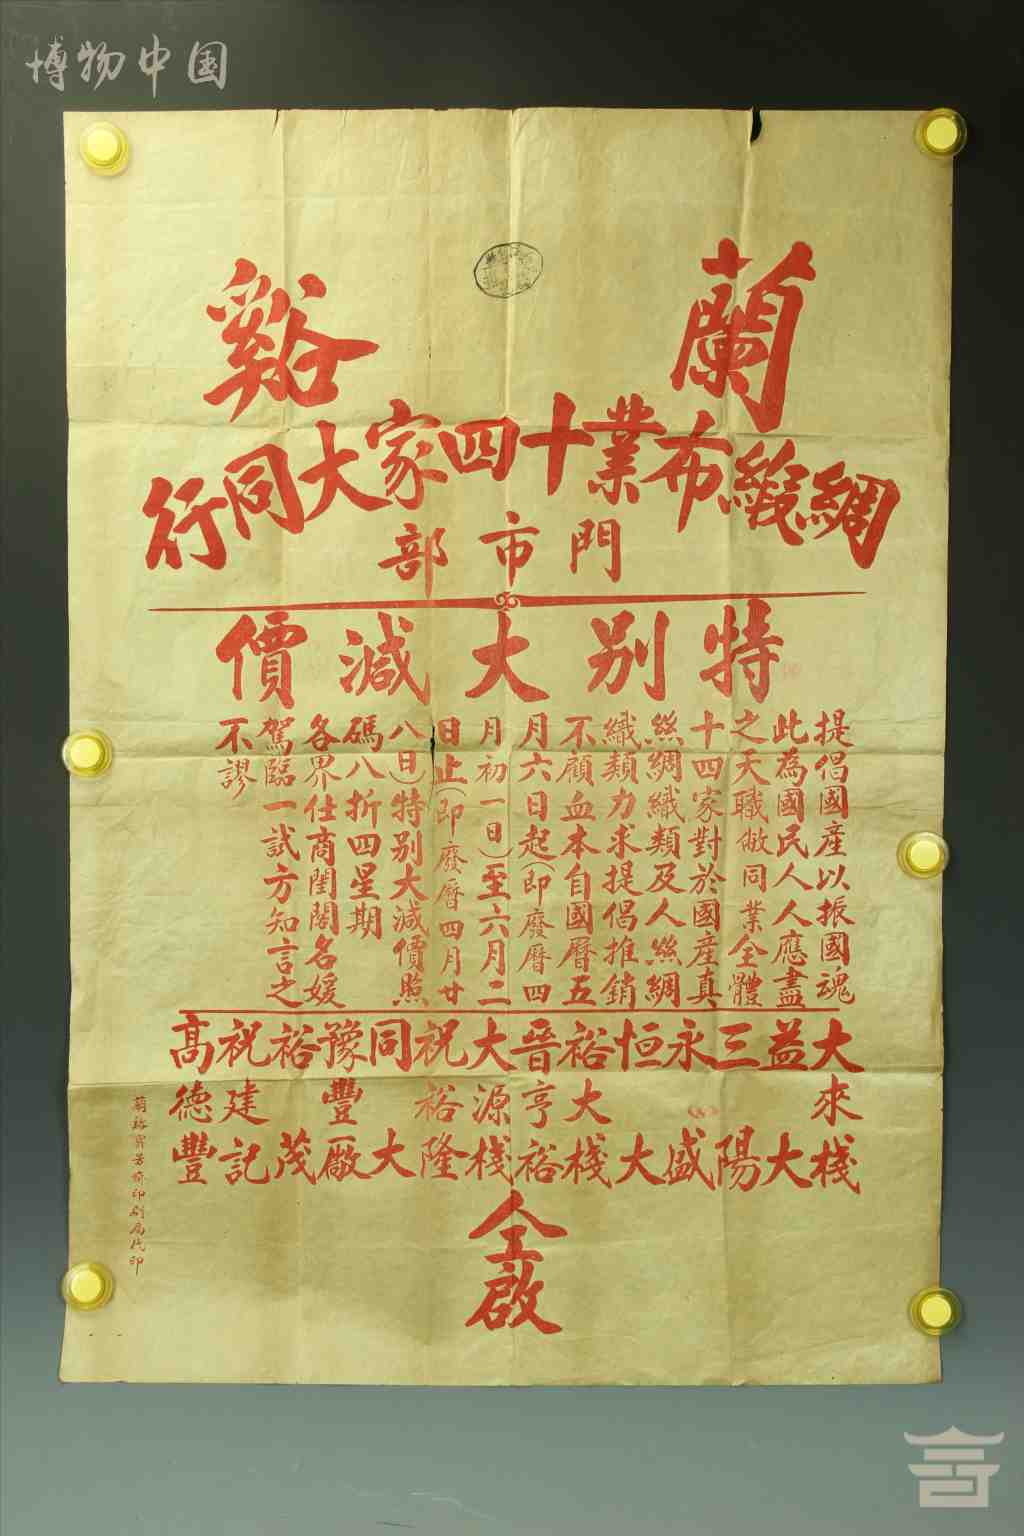 博物中国
蘭谿
綢緞布業十四家大同行
門市部
特別大減價
提倡國產以振國魂
此為國民人人應盡
之天職敝同業全體
十四家對於國產真
絲綢織類及人絲綢
織類力求提倡推銷
不顧血本自國曆五
月六日起(即廢曆四
月初一日)至六月二
日止(即廢曆四月廿
八日)特別大減價照
碼八折四星期
各界仕商閨閣名媛
駕臨一試方知言之
不謬
大來棧
益大
三陽
永盛
恒大
裕大棧
晉亨裕
大源棧
祝裕隆
同大
豫豐廠
裕茂
祝建記
高德豐
仝啟
印刷局代印